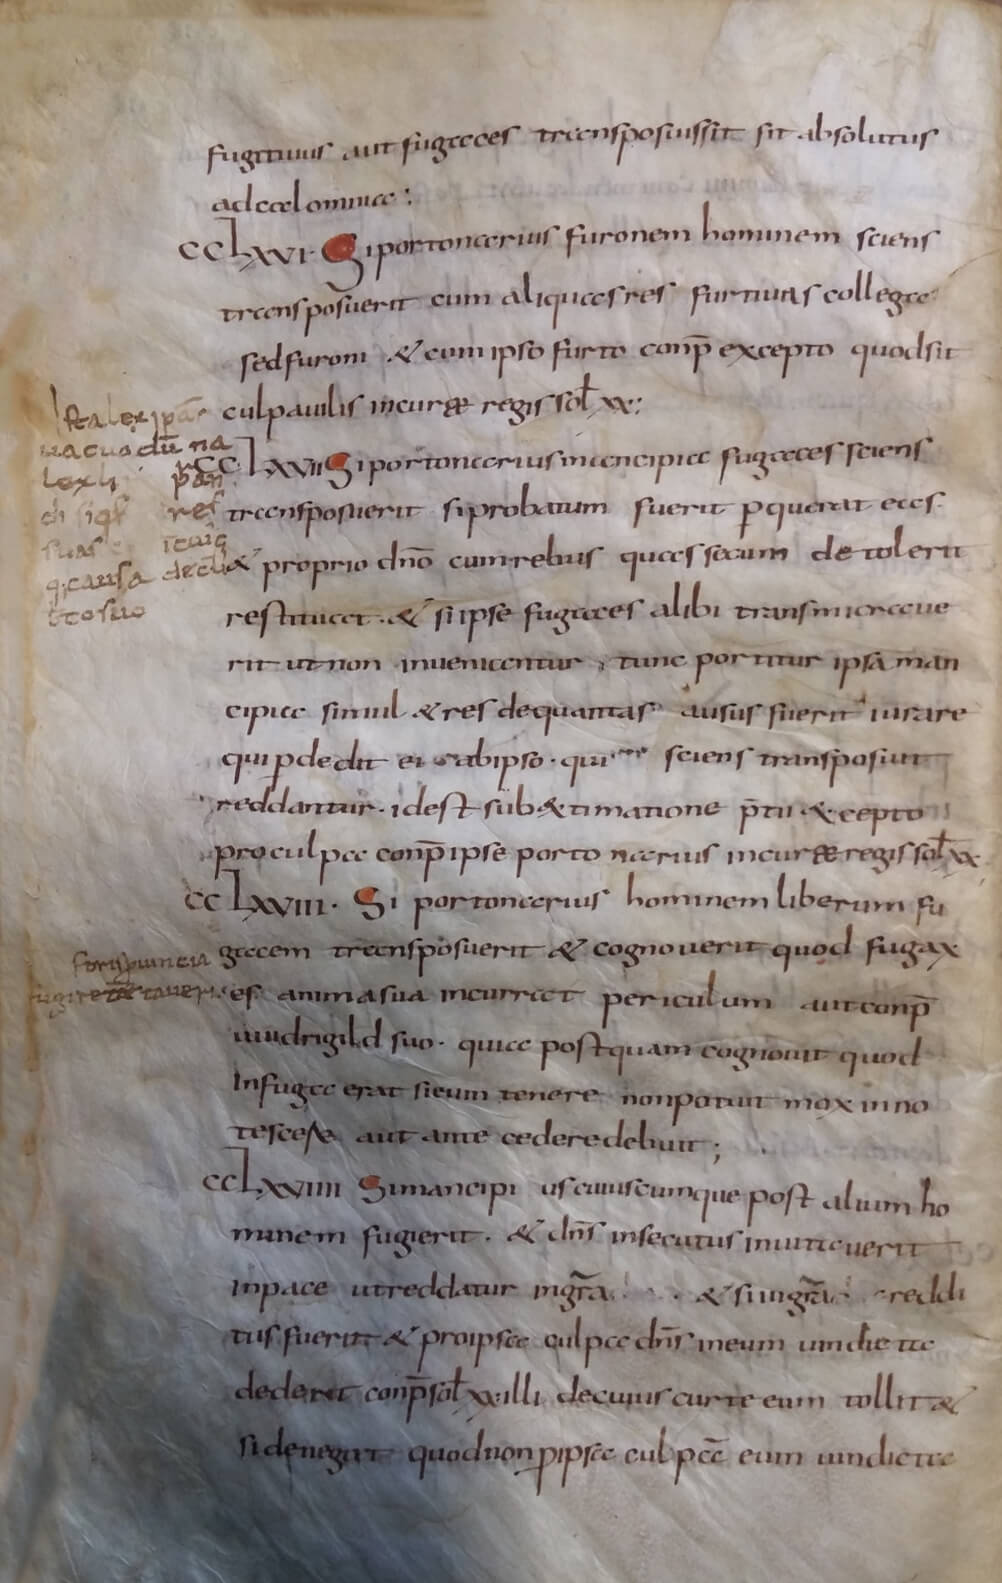 fugitiuus aut fugaces transposuissit sit absolutus
ad calomnia:
CCLXVI. Si portonarius furonem hominem sciens
transposuerit cum aliquas res furtiuas collega
sed furoni & cum ipso furto conp̄ excepto quod sit
culpauilis in curæ regis sol xx:
CCLXVII Si portonarius mancipia fugaces sciens
transposuerit si probatum fuerit perquirat eas
& proprio dn̄o cum rebus quas secum detolerit
restituat. & si ipse fugaces alibi transmicraue
rit ut non inueniantur, tunc portitur ipsa man
cipia simul & res de quantas ausus fuerit iurare
qui pdedit ei ab ipso. qui sciens transposiuit
reddantur. id est sub &timatione p̄tii & cepto
pro culpa conp̄ ipse portonarius in curæ regis sol xx
CCLXVIII. Si portonarius hominem liberum fu
gacem transposuerit & cognouerit quod fugax
es anima sua incurrat periculum aut conp̄
uuidrigild suo. quia postquam cognouit quod
In fuga erat si eum tenere non potuit mox inno
tescere aut ante cedere debuit;
CCLXVIIII Si mancipi us cuiuscumque post alium ho
minem fugierit. & dn̄s insecutus inuitauerit
In pace ut reddatur in gr̄a & si in gr̄a reddi
tus fuerit & pro ipsa culpa dn̄s in eum uindicta
dederit conp̄ sol xx: illi de cuius curte eum tollit &
si denegat quod non p ipsa culpa eum uindicta
Ista lex ipa
uacuo dn̄ na
lex li
suas
q; causa
tto suo